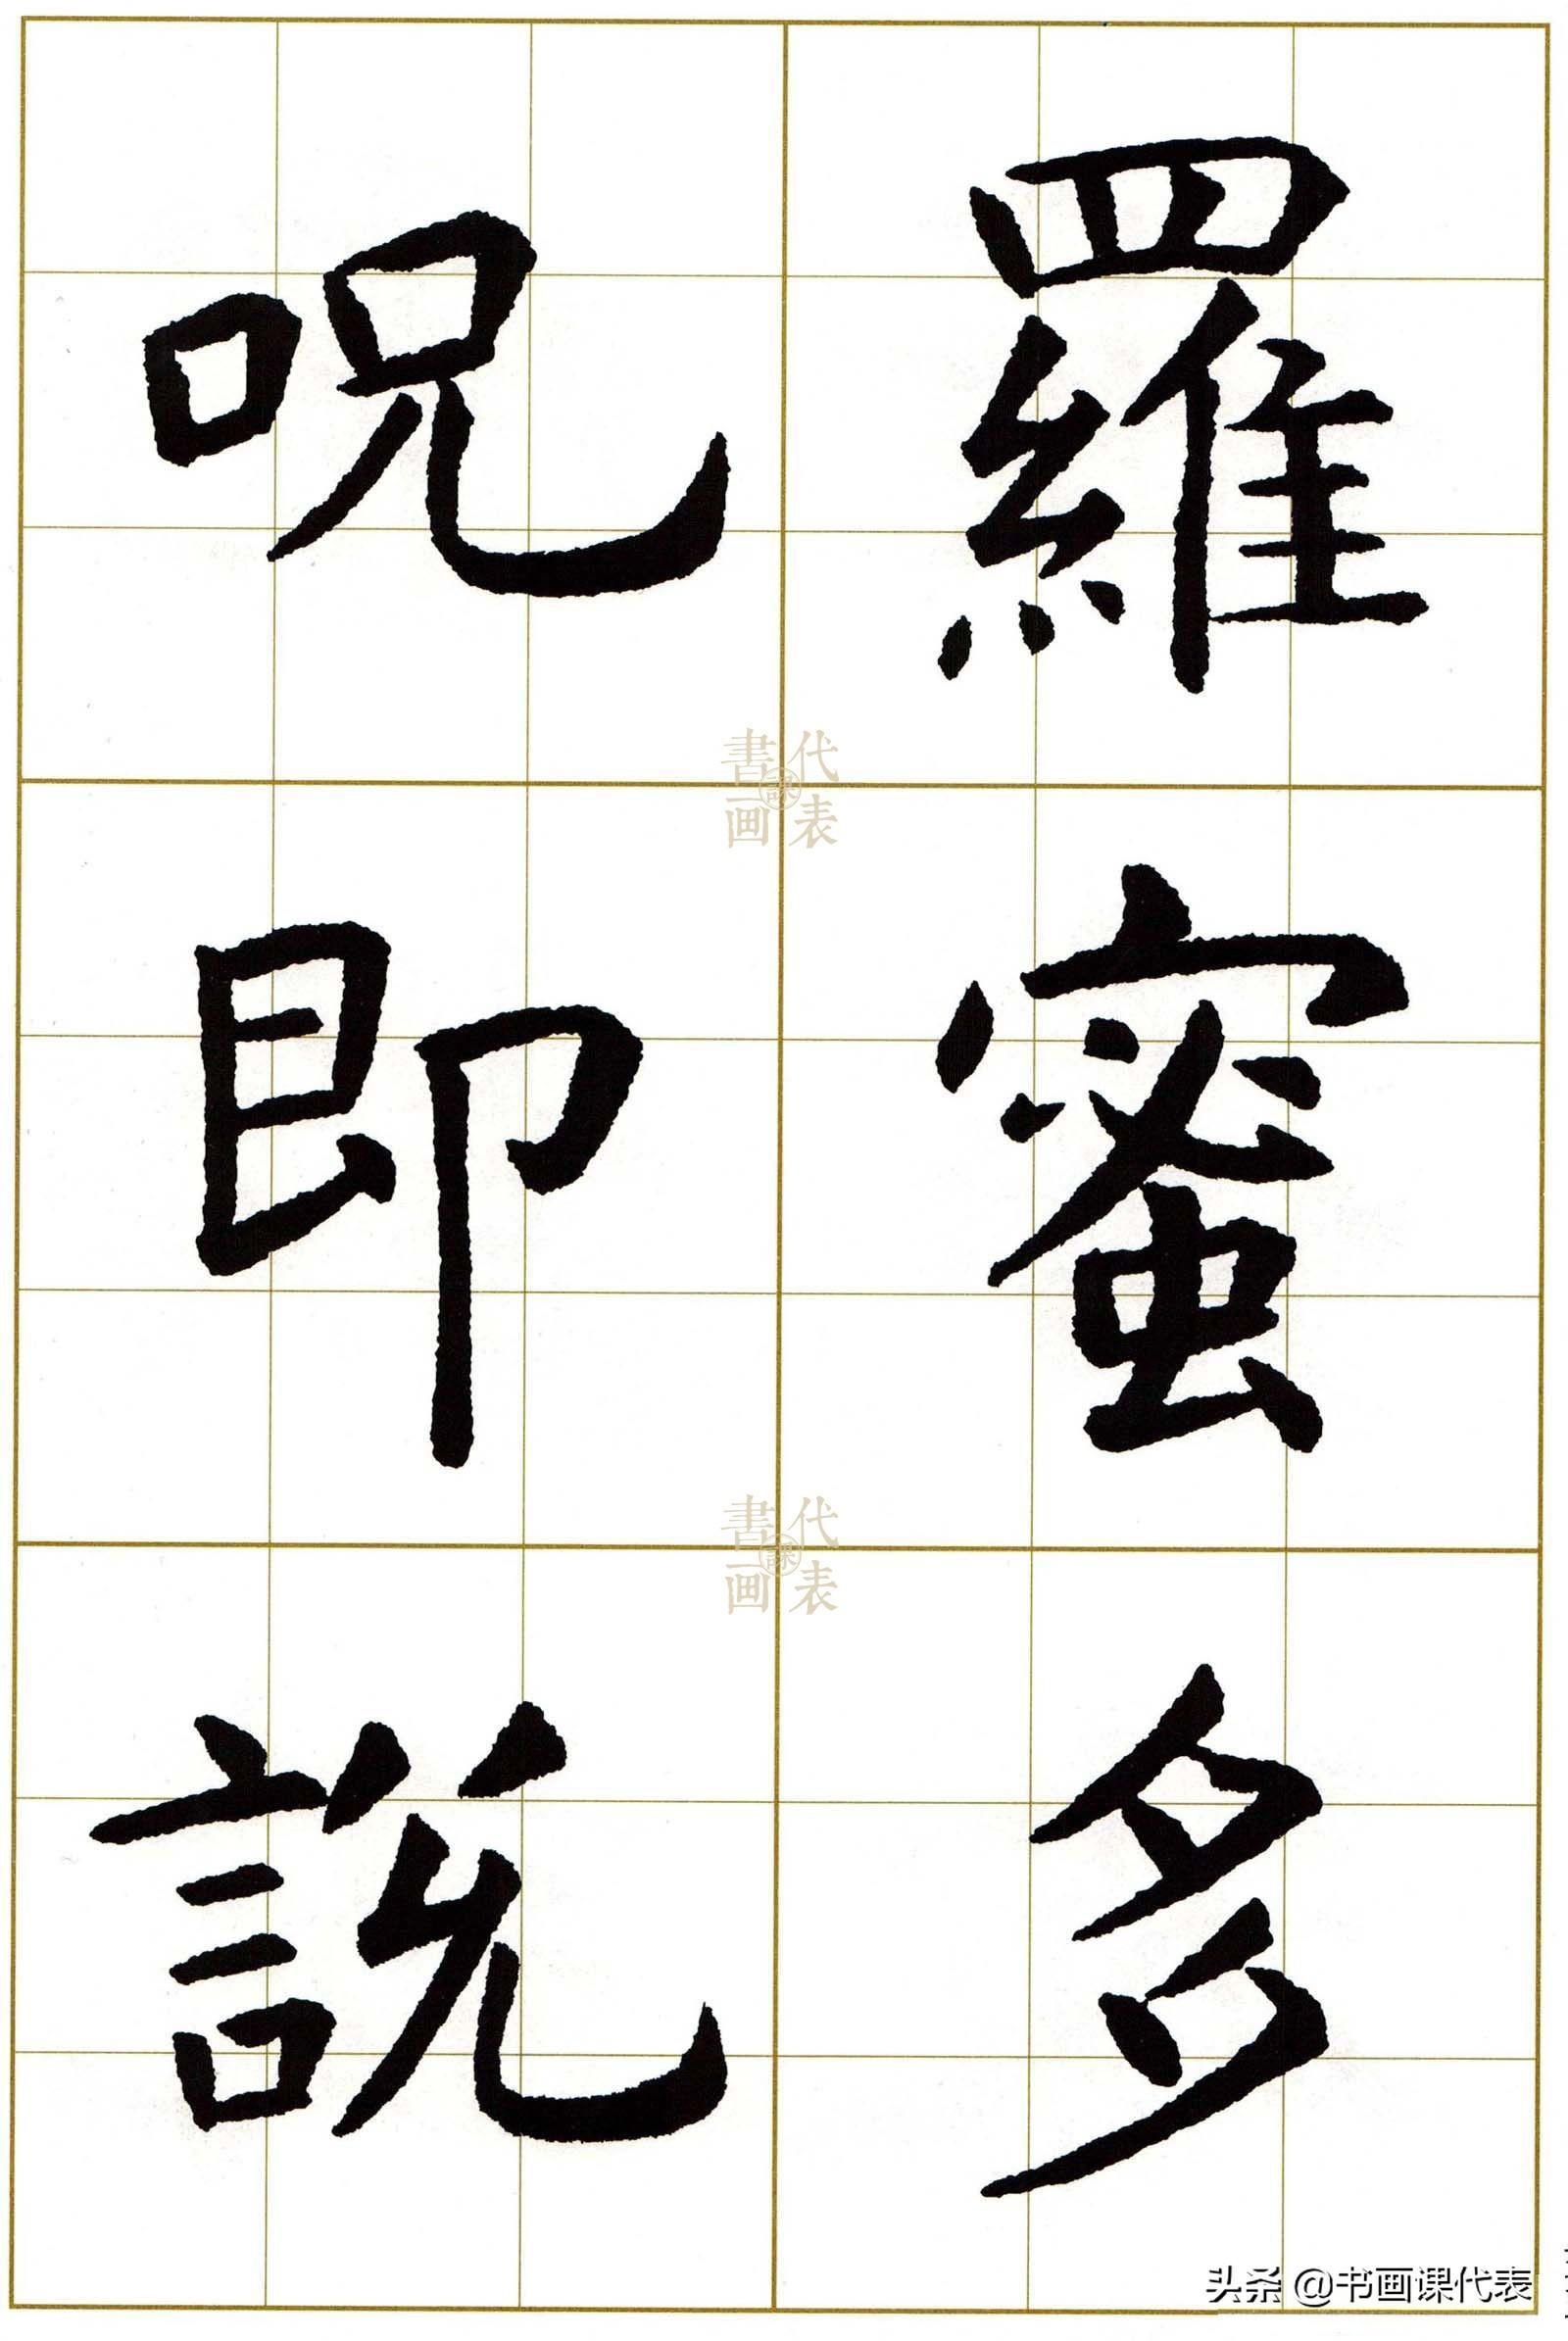 羅蜜多
呪即說
書画課代表
書画課代表
头条 @书画课代表